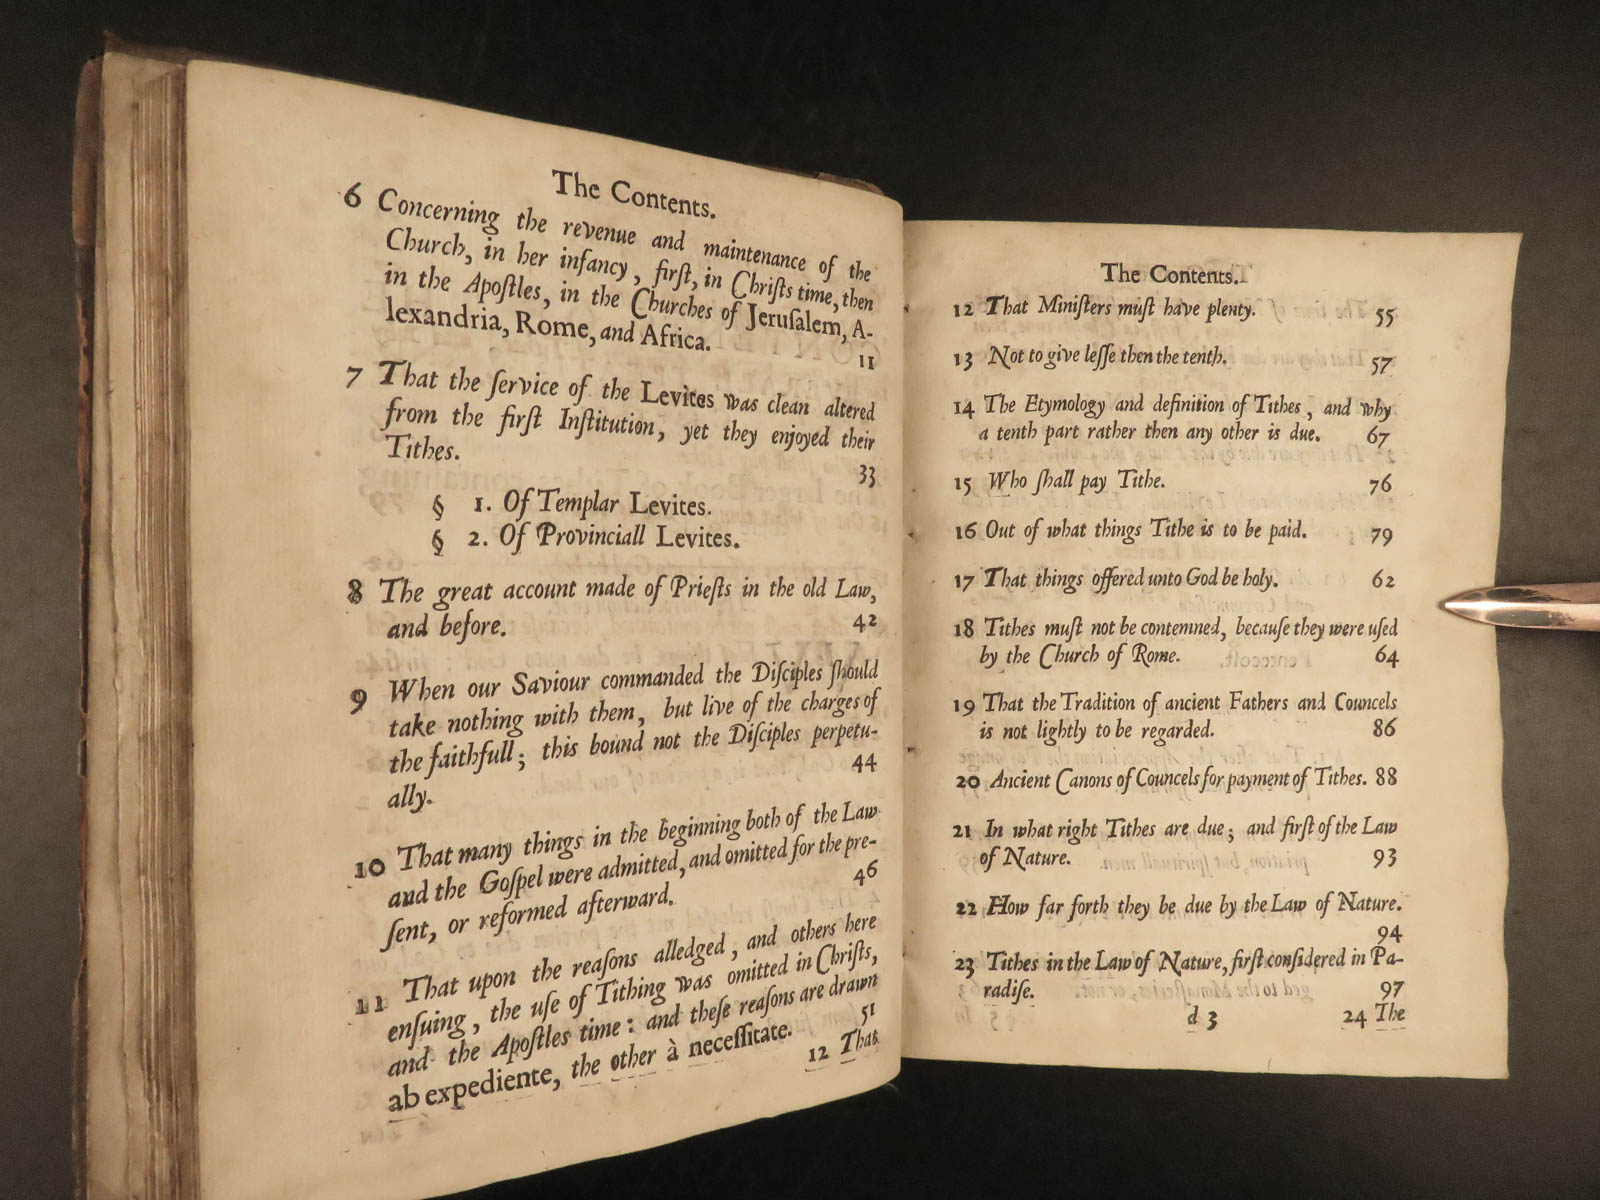 The Contents.
6 Concerning the revenue and maintenance of the
Church, in her infancy, firſt, in Chriſts time, then
in the Apoſtles, in the Churches of Jeruſalem, A-
lexandria, Rome, and Africa. 11
7 That the ſervice of the Levites was clean altered
from the firſt Inſtitution, yet they enjoyed their
Tithes. 33
§ 1. Of Templar Levites.
§ 2. Of Provinciall Levites.
8 The great account made of Prieſts in the old Law,
and before. 42
9 When our Saviour commanded the Diſciples ſhould
take nothing with them, but live of the charges of
the faithfull; this bound not the Diſciples perpetu-
ally. 44
10 That many things in the beginning both of the Law
and the Goſpel were admitted, and omitted for the pre-
ſent, or reformed afterward. 46
11 That upon the reaſons alledged, and others here
enſuing, the uſe of Tithing was omitted in Chriſts,
and the Apoſtles time: and theſe reaſons are drawn
ab expediente, the other à neceſſitate. 51
12 That
The Contents.
12 That Miniſters muſt have plenty. 55
13 Not to give leſſe then the tenth. 57
14 The Etymology and definition of Tithes, and why
a tenth part rather then any other is due. 67
15 Who ſhall pay Tithe. 76
16 Out of what things Tithe is to be paid. 79
17 That things offered unto God be holy. 62
18 Tithes muſt not be contemned, becauſe they were uſed
by the Church of Rome. 64
19 That the Tradition of ancient Fathers and Councels
is not lightly to be regarded. 86
20 Ancient Canons of Councels for payment of Tithes. 88
21 In what right Tithes are due; and firſt of the Law
of Nature. 93
22 How far forth they be due by the Law of Nature.
94
23 Tithes in the Law of Nature, firſt conſidered in Pa-
radiſe. 97
d 3 24 The